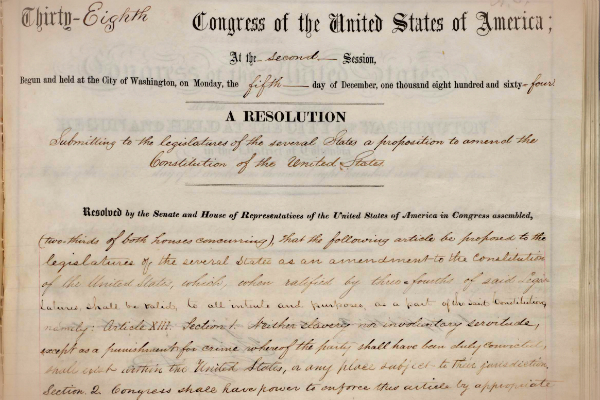 Thirty-Eighth Congress of the United States of America;
At the second Session,
Begun and held at the City of Washington, on Monday, the fifth day of December, one thousand eight hundred and sixty-four
A RESOLUTION
Submitting to the legislatures of the several States a proposition to amend the
Constitution of the United States
Resolved by the Senate and House of Representatives of the United States of America in Congress assembled,
(two-thirds of both houses concurring), that the following article be proposed to the
legislatures of the several States as an amendment to the Constitution
of the United States, which, when ratified by three-fourths of said Legis-
latures, shall be valid, to all intents and purposes, as a part of the said Constitution,
namely: Article XIII. Section 1. Neither slavery nor involuntary servitude,
except as a punishment for crime whereof the party shall have been duly convicted,
shall exist within the United States, or any place subject to their jurisdiction.
Section 2. Congress shall have power to enforce this article by appropriate